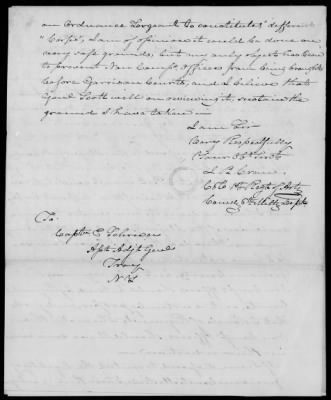 an Ordnance Sergeant to constitute "different
"Corps", I am of opinion it could be done on
very safe grounds, but my only object has been
to prevent Non Comp. Officers from being brought
before Garrison Courts, and I believe that
Genl Scott will on reviewing it, sustain the
ground I have taken
I am Sir
Very Respectfully
Your Obt Servt
I. B. Crane
Col 1st Regt of Arty
To:
Captn
Asst Adjt Genl
Troy
N.Y.